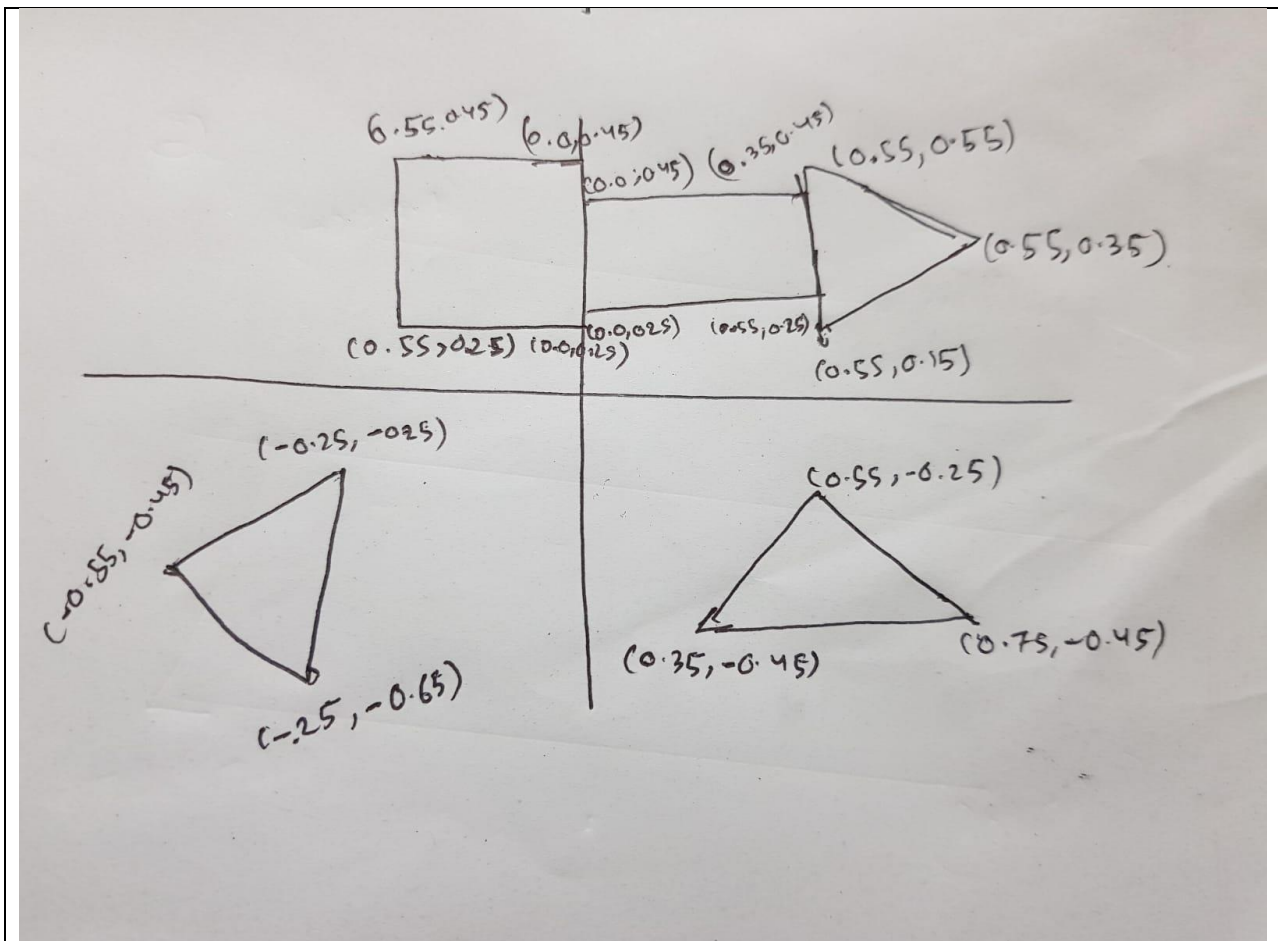 6.55.045)
(0.0,0.45)
(0.0,045)
(0.35,0.45)
(0.55,0.55)
(0.55,0.35)
(0.55,0.25)
(0.0,0.25)
(0.0,025)
(0.55,0.25)
(0.55,0.15)
(-0.25,-025)
(-0.55,-0.45)
(-.25,-0.65)
(0.55,-0.25)
(0.35,-0.45)
(0.75,-0.45)